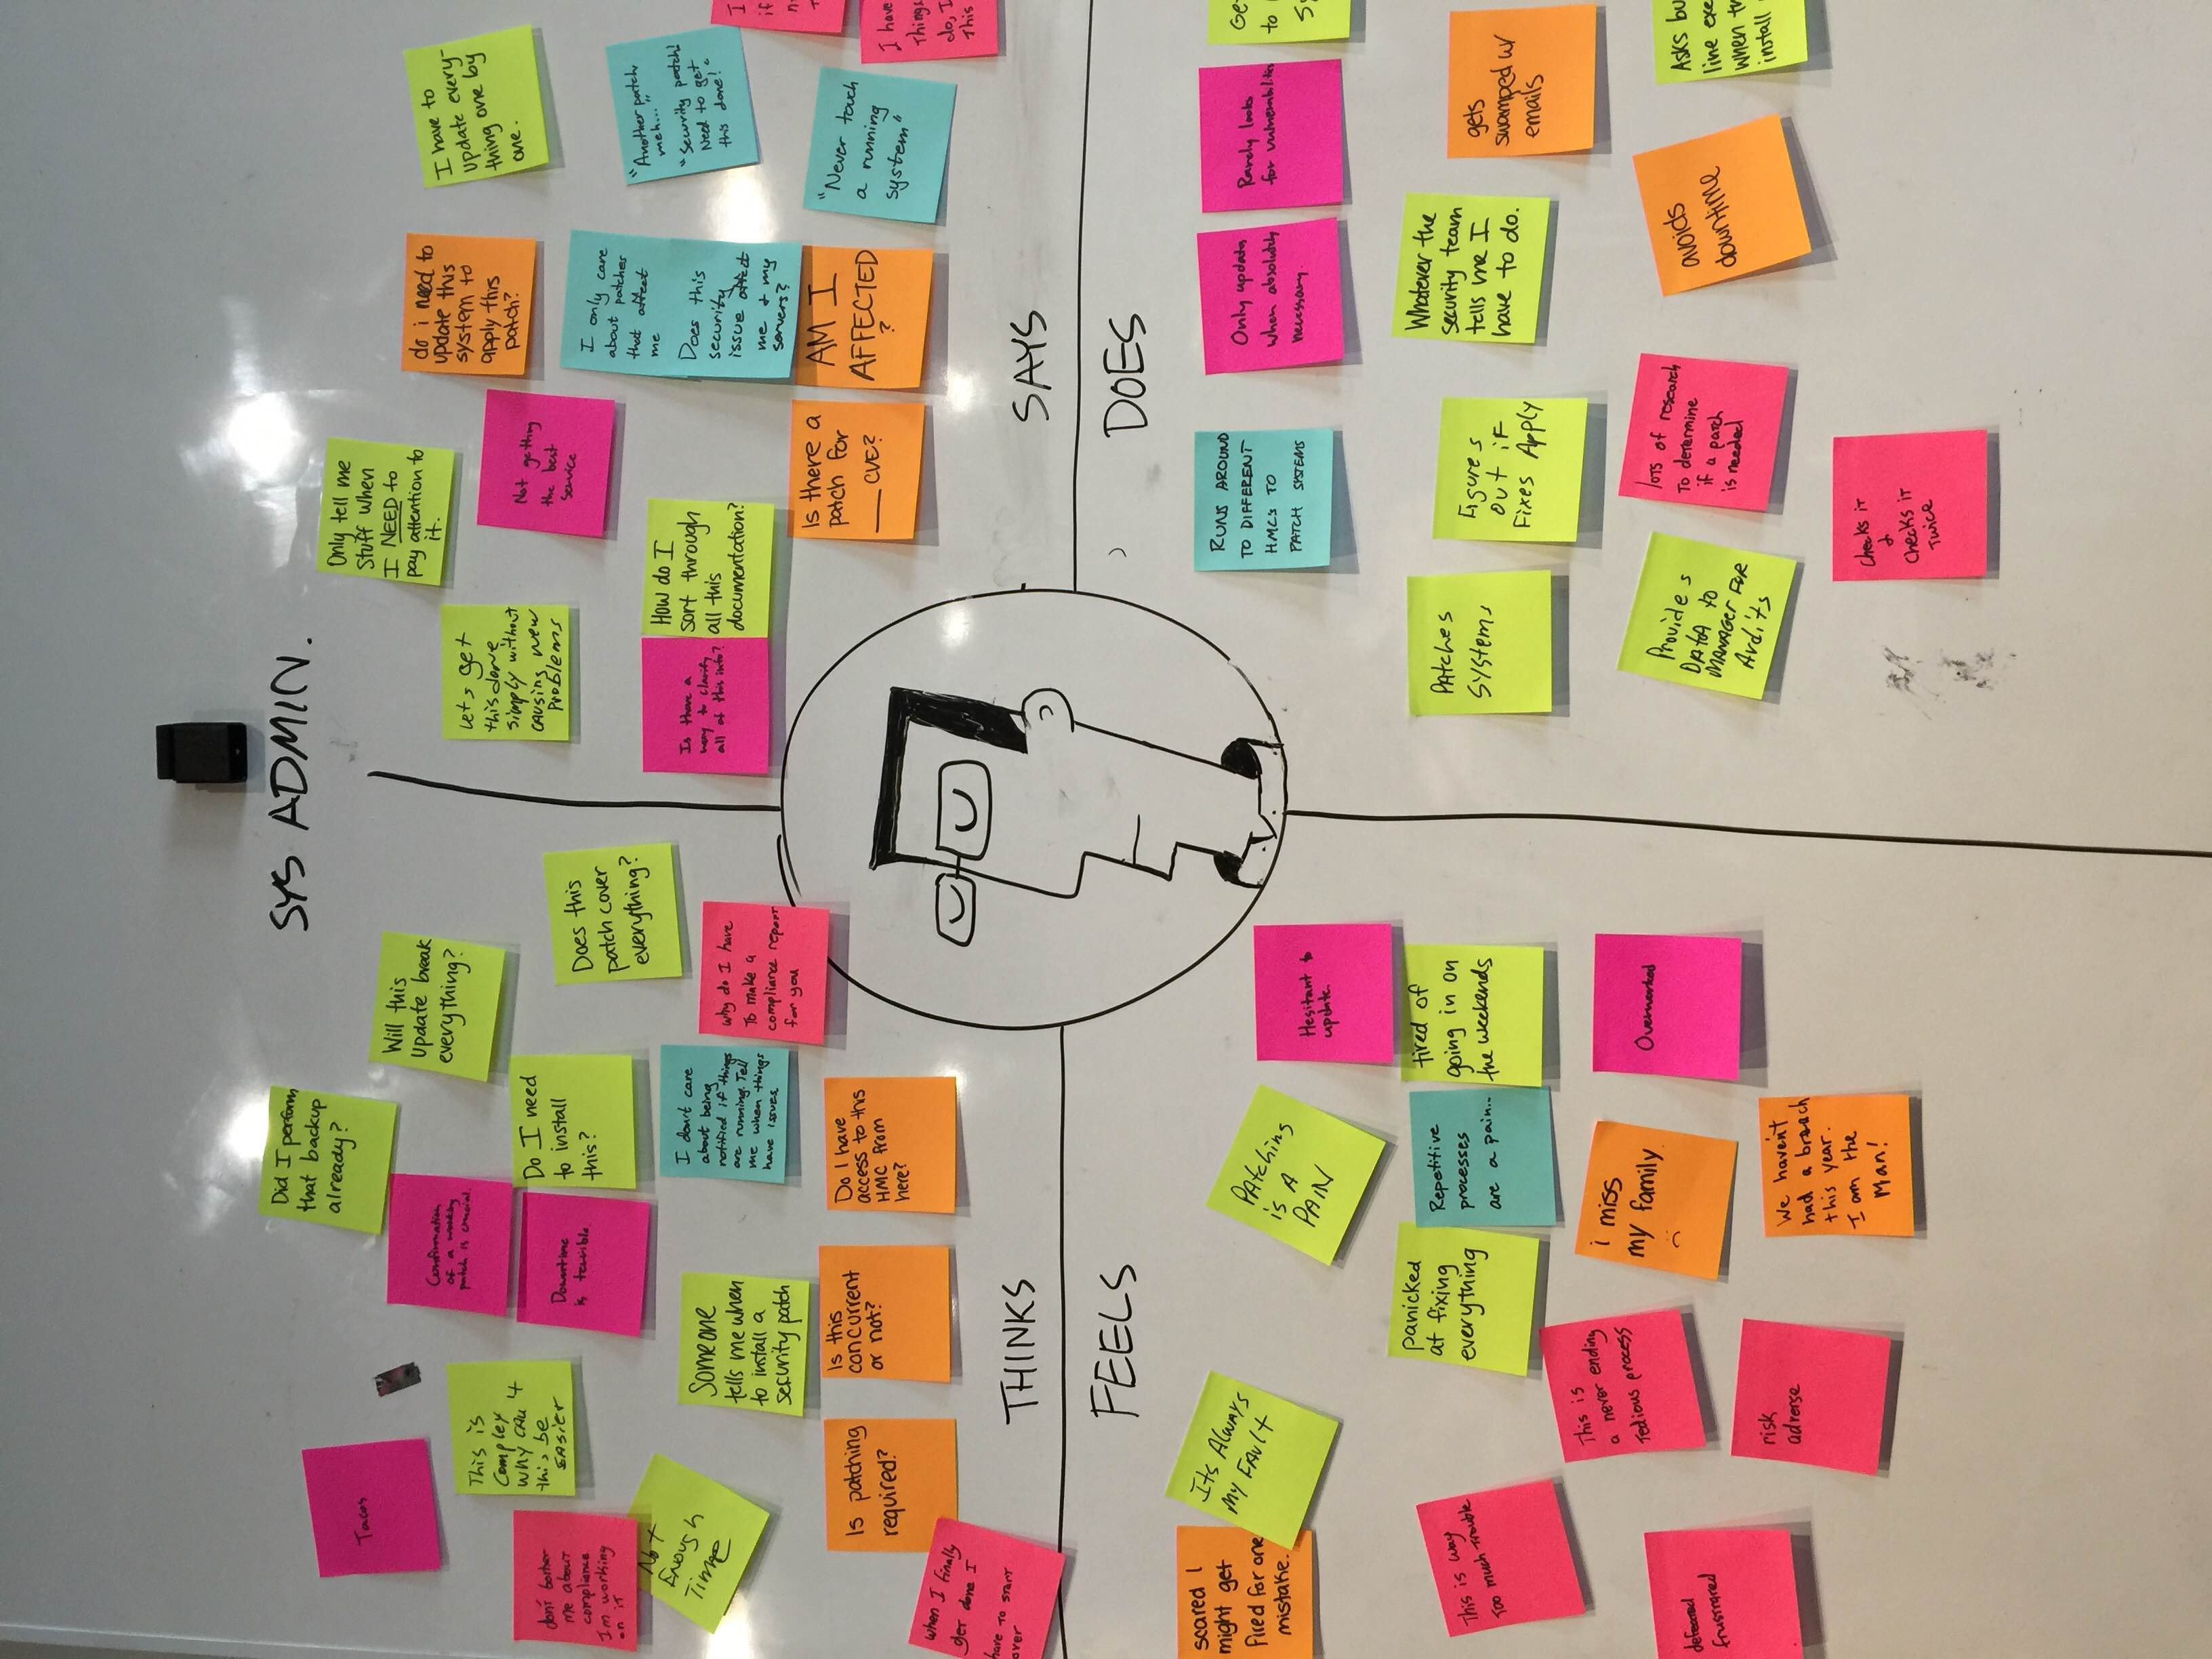 SYS ADMIN.
Tacos
Did I perform
that backup
already?
Confirmation
of a working
patch is crucial.
Will this
update break
everything?
This is
Complex
why can't
this be
EASier
don't bother
me about
compliance
Im working
on it
Downtime
is terrible.
Do I need
to install
this?
Does this
patch cover
everything?
Not
Enough
Time
Someone
tells me when
to install a
security patch
I don't care
about being
notified if things
are running. Tell
me when things
have issues
why do I have
to make a
compliance report
for you
Is patching
required?
Is this
concurrent
or not?
Do I have
access to this
HMC from
here?
when I finally
get done I
have to start
over
THINKS
Only tell me
Stuff when
I NEED to
pay attention to
it.
do i need to
update this
system to
apply this
patch?
I have to
update every-
thing one by
one.
Let's get
this done
simply without
causing new
Problems
Not getting
the best
service
I only care
about patches
that affect
me
Does this
security
issue affect
me & my
servers?
"Another patch,
meh..."
"Security patch!
Need to get
this done!"
Is there a
way to clarify
all of this info?
How do I
sort through
all this
documentation?
I
if
Is there a
patch for
___ CVE?
AM I
AFFECTED
?
"Never touch
a running
system"
I have
Things
do, I
This
SAYS
FEELS
scared I
might get
fired for one
mistake.
Its Always
My FAulT
PAtching
is A
PAIN
Hesitant to
update.
This is way
Too much Trouble
panicked
at fixing
everything
Repetitive
processes
are a pain...
tired of
going in on
the weekends
This is
a never ending
Tedious process
i miss
my family
Overworked
defeated
frustrated
risk
adverse
We haven't
had a breach
this year.
I am the
Man!
DOES
RUNS AROUND
TO DIFFERENT
HMCs TO
PATCH SYSTEMS
Only updates
when absolutely
necessary.
Rarely looks
for vulnerabilities
Ge
to
Sy
PAtches
SYstems
Figures
out iF
Fixes Apply
Whatever the
security team
tells me I
have to do.
gets
swamped w/
emails
Provides
DATA to
MANAGER FOR
Audits
lots of research
To determine
if a patch
is needed
avoids
downtime
Asks bu
line exe
when t
install
checks it
&
checks it
Twice